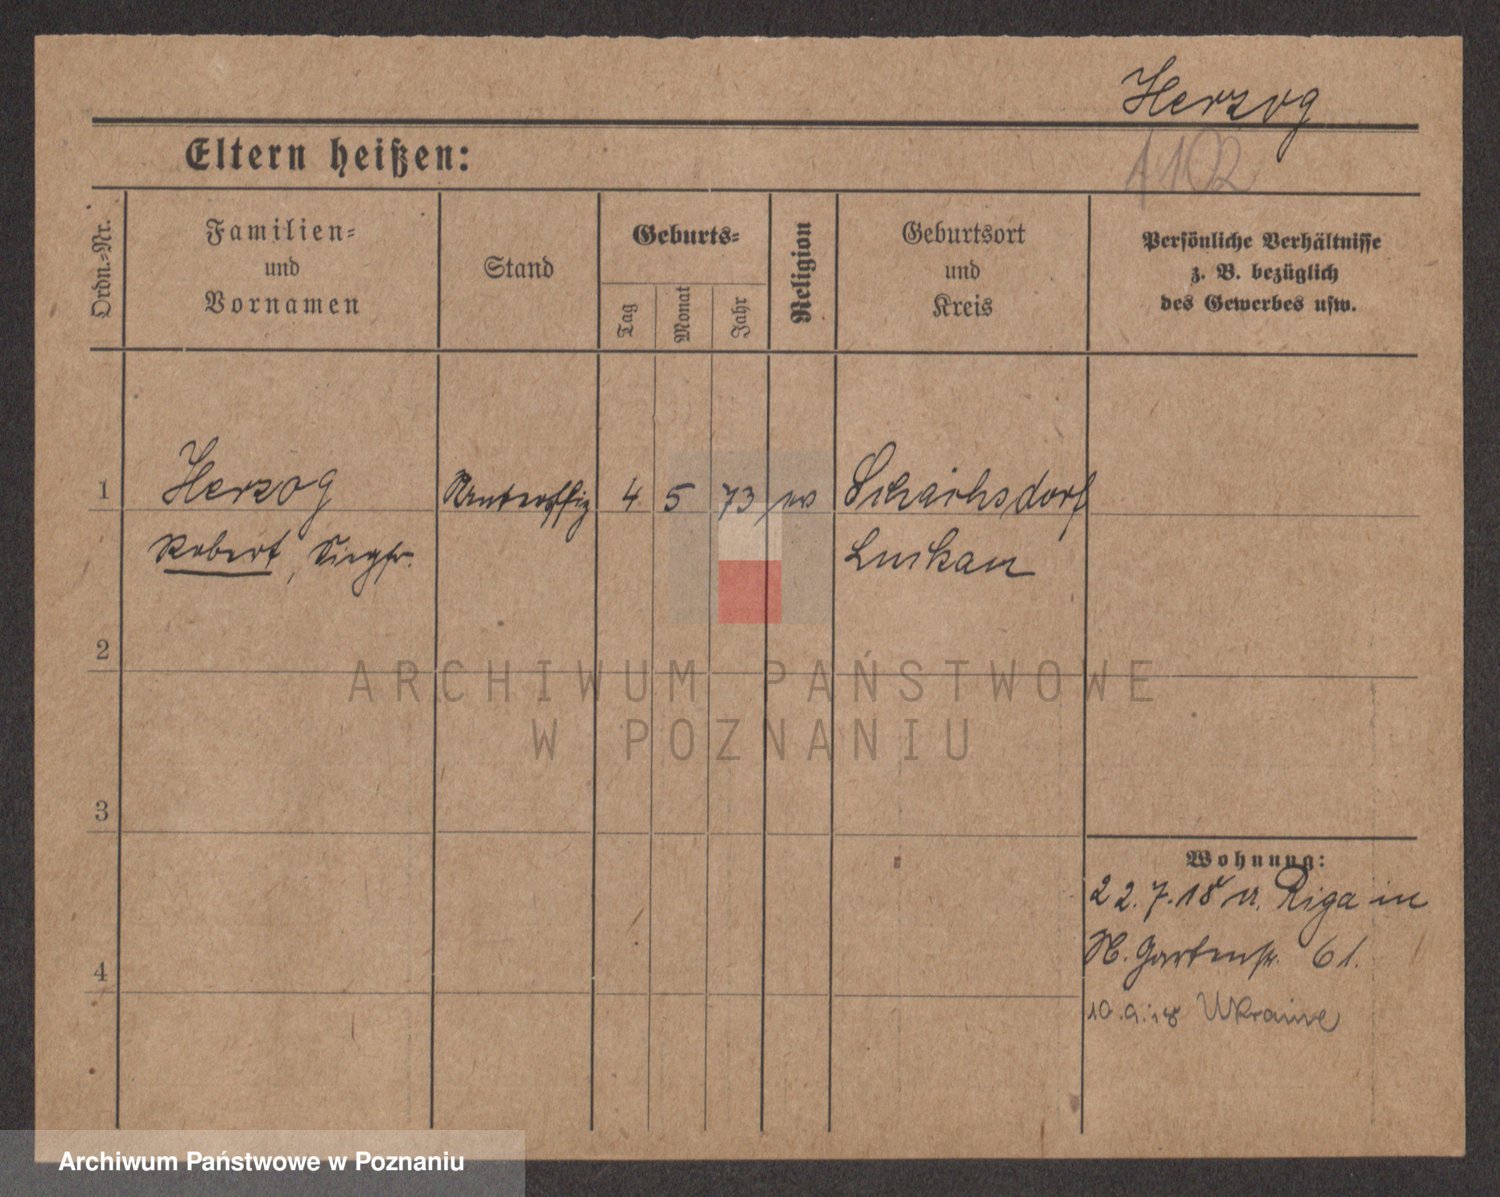 Herzog
1102
Eltern heißen:
Ordn.-Nr.
Familien-
und
Vornamen
Stand
Geburts-
Tag
Monat
Jahr
Religion
Geburtsort
und
Kreis
Persönliche Verhältnisse
z. B. bezüglich
des Gewerbes usw.
1
Herzog
4 5 73
Robert, Siegfr.
Luckau
2
ARCHIWUM PAŃSTWOWE
W POZNANIU
3
Wohnung:
22.7.18 v. Riga in
Gartenstr. 61.
4
Ukraine
Archiwum Państwowe w Poznaniu